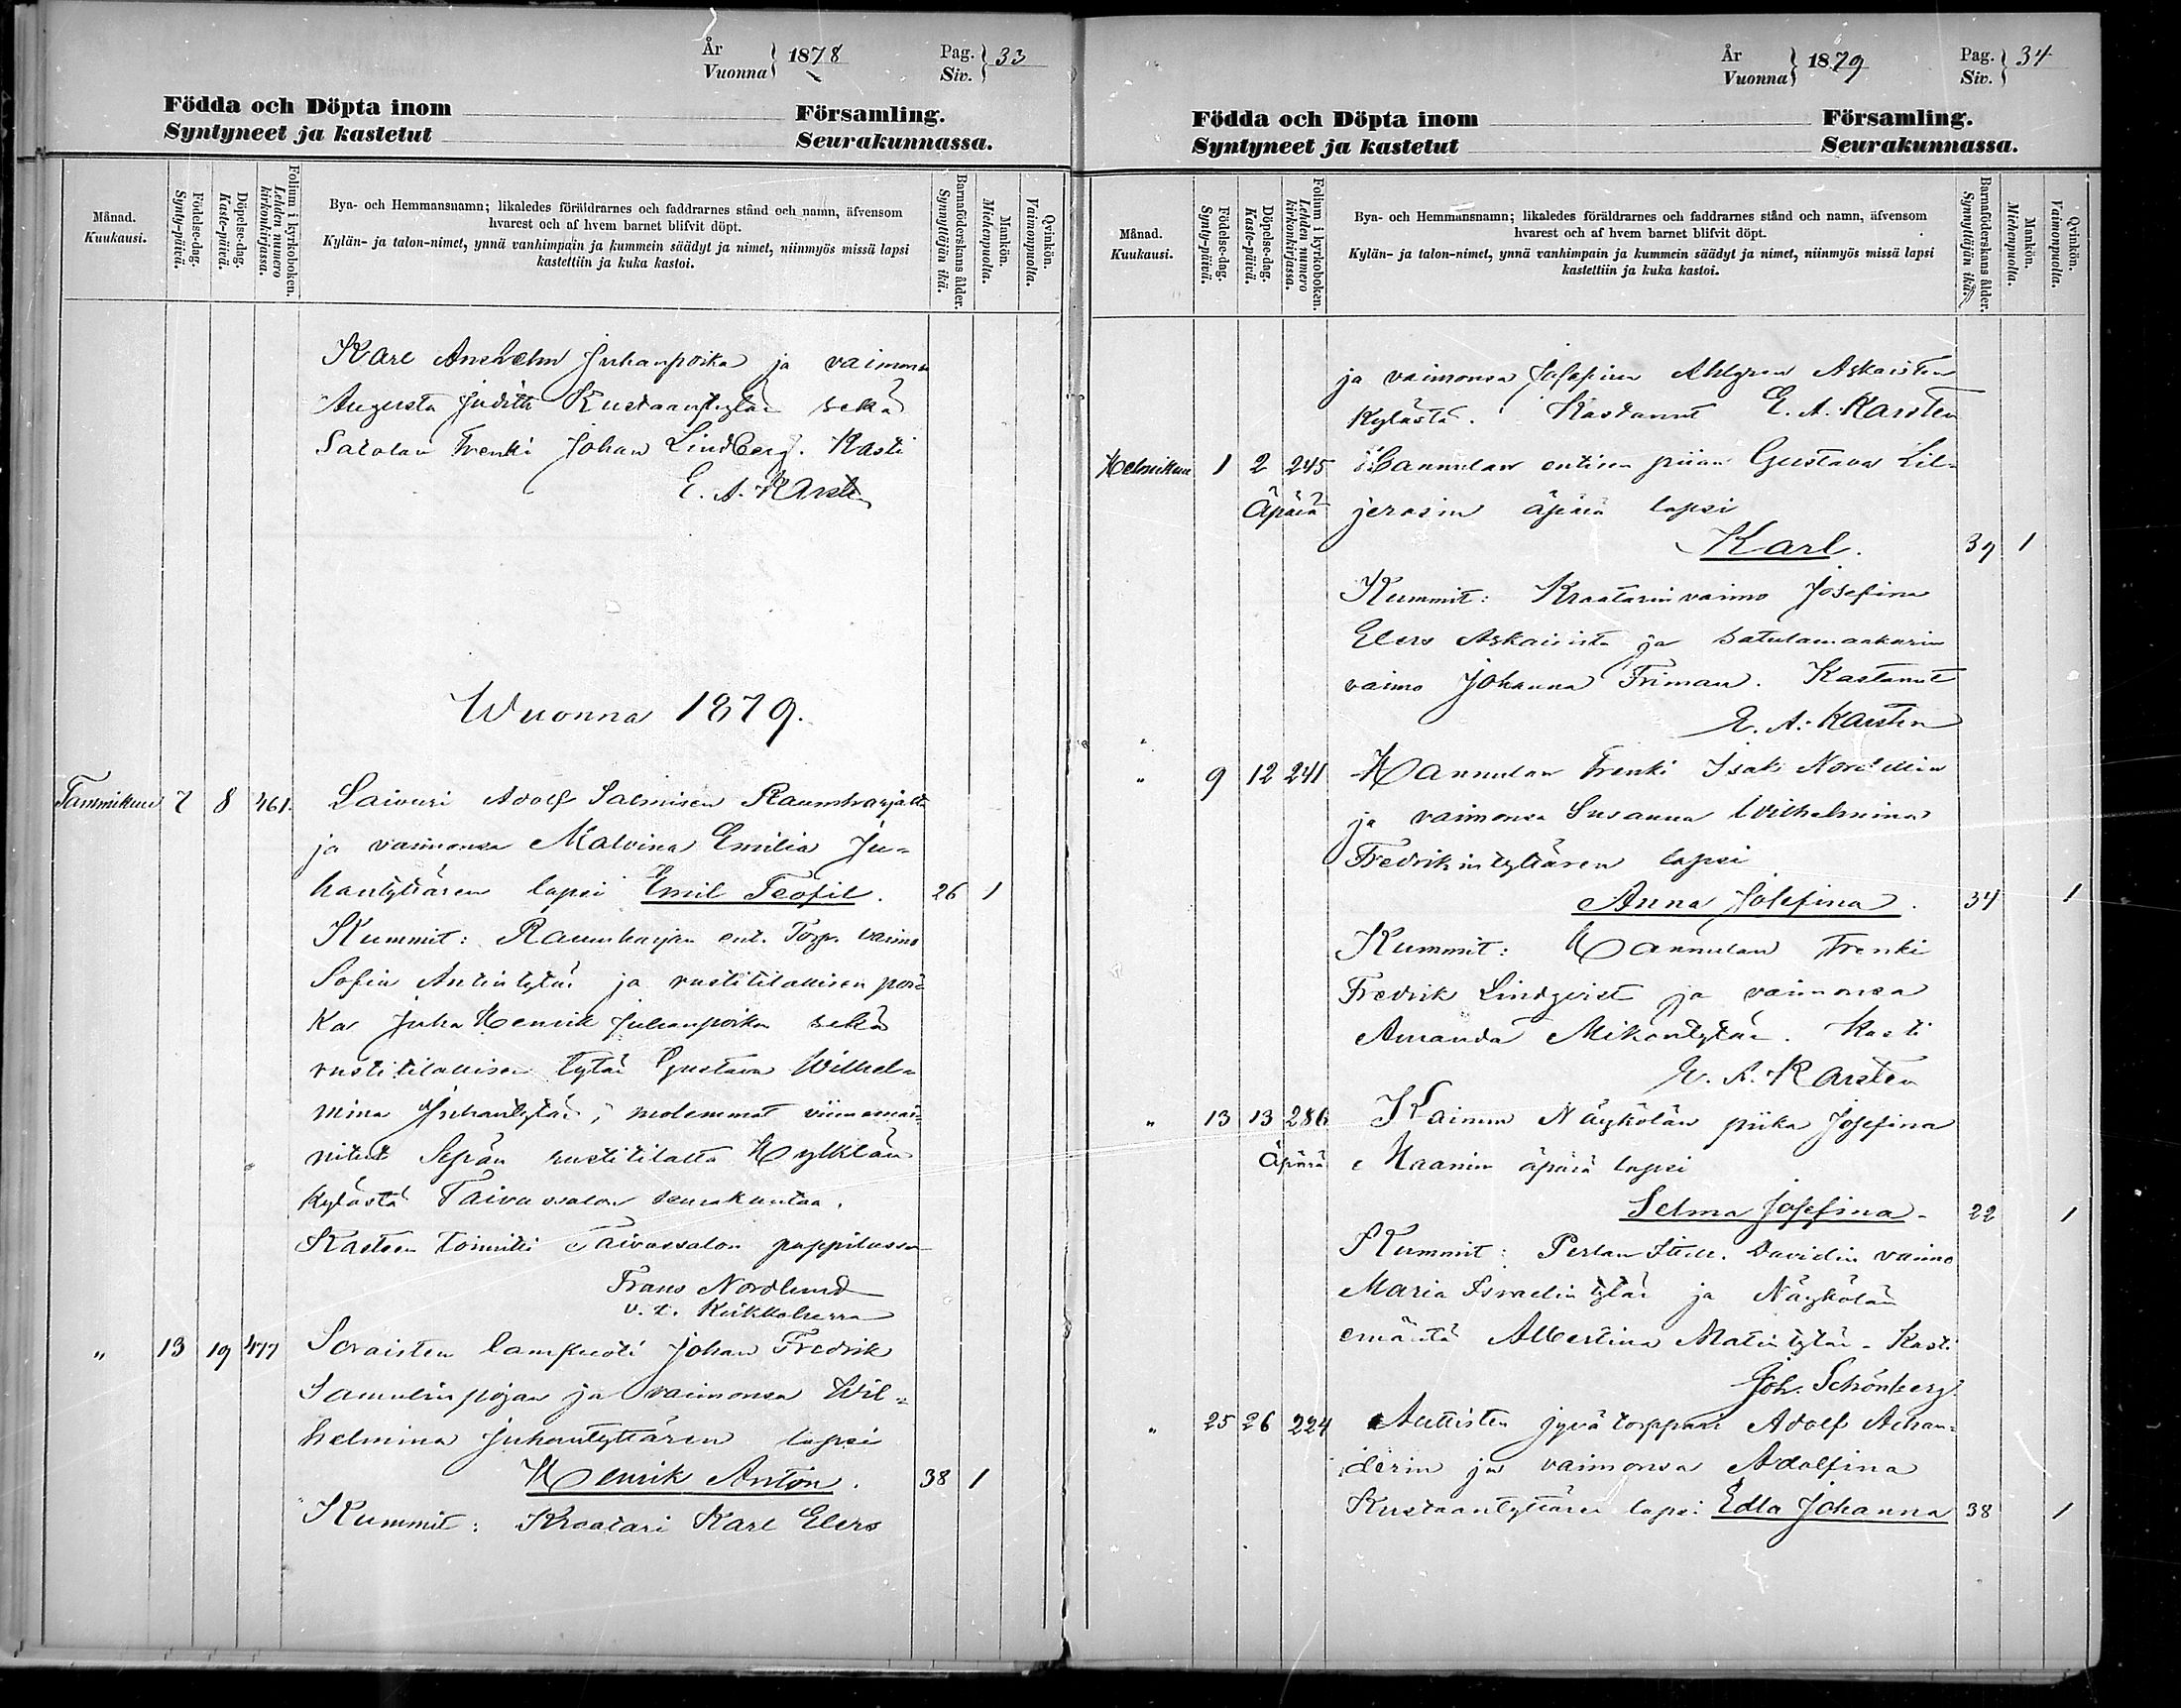 År
Vuonna } 1878 Pag.
Siv. } 33
Födda och Döpta inom Församling.
Syntyneet ja kastetut Seurakunnassa.
Månad.
Kuukausi.
Födelse-dag.
Synty-päivä.
Döpelse-dag.
Kaste-päivä.
Folium i kyrkoboken.
Lehden numero
kirkonkirjassa.
Bya- och Hemmansnamn; likaledes föräldrarnes och faddrarnes stånd och namn, äfvensom
hvarest och af hvem barnet blifvit döpt.
Kylän- ja talon-nimet, ynnä vanhimpain ja kummein säädyt ja nimet, niinmyös missä lapsi
kastettiin ja kuka kastoi.
Barnaföderskans ålder.
Synnyttäjän ikä.
Mankön.
Miehenpuolta.
Qvinkön.
Vaimonpuolta.
Karl Anshelm Juhanpoika ja vaimonsa
Augusta Judith Kustaantytär sekä
Salolan trenki Johan Lindberg. Kasti
E. A. Karsten
Wuonna 1879.
Tammikuu 7 8 461. Laivuri Adolf Salmisen Raumharjalta
ja vaimonsa Malvina Emilia Ju-
hantyttären lapsi Emil Teofil. 26 1
Kummit: Raumharjan ent. Torp. vaimo
Sofia Antintytär ja rustitilallisen poi-
ka Juha Henrik Juhanpoika sekä
rustitilallisen tytär Gustava Wilhel-
mina Juhantytär, molemmat viimemai-
nitut Sepän rustitilalta Hylklän
kylästä Taivassalon seurakuntaa.
Kasteen toimitti Taivassalon pappilassa
Frans Nordlund
v. t. Kirkkoherra
" 13 19 477 Soraisten lampuoti Johan Fredrik
Samulinpojan ja vaimonsa Wil-
helmina Juhantyttären lapsi
Henrik Anton. 38 1
Kummit: Kraatari Karl Elers
År
Vuonna } 1879 Pag.
Siv. } 34
Födda och Döpta inom Församling.
Syntyneet ja kastetut Seurakunnassa.
Månad.
Kuukausi.
Födelse-dag.
Synty-päivä.
Döpelse-dag.
Kaste-päivä.
Folium i kyrkoboken.
Lehden numero
kirkonkirjassa.
Bya- och Hemmansnamn; likaledes föräldrarnes och faddrarnes stånd och namn, äfvensom
hvarest och af hvem barnet blifvit döpt.
Kylän- ja talon-nimet, ynnä vanhimpain ja kummein säädyt ja nimet, niinmyös missä lapsi
kastettiin ja kuka kastoi.
Barnaföderskans ålder.
Synnyttäjän ikä.
Mankön.
Miehenpuolta.
Qvinkön.
Vaimonpuolta.
ja vaimonsa Josefina Ahlgren Askaisten
kylästä. Kastanut E. A. Karsten
Helmikuu 1 2 245 entisen piian Gustava Lil-
Äpärä jerosin äpärä lapsi
Karl. 39 1
Kummit: Kraatarinvaimo Josefina
Elers Askaisista ja satulamaakarin
vaimo Johanna Friman. Kastanut
E. A. Karsten
" 9 12 241 Hannulan trenki Isak Nordellin
ja vaimonsa Susanna Wilhelmina
Fredrikintyttären lapsi
Anna Josefina. 34 1
Kummit: Hannulan trenki
Fredrik Lindqvist ja vaimonsa
Amanda Mikontytär. Kasti
E. A. Karsten
" 13 13 286 Kaimin Näykölän piika Josefina
Äpärä Maanin äpärä lapsi
Selma Josefina. 22 1
Kummit: Davidin vaimo
Maria Israelintytär ja Näykölän
emäntä Albertina Matintytär. Kasti
Joh. Schönberg.
" 25 26 224 Auttisten jyvätorppari Adolf
derin ja vaimonsa Adolfina
Kustaantyttären lapsi Edla Johanna 38 1